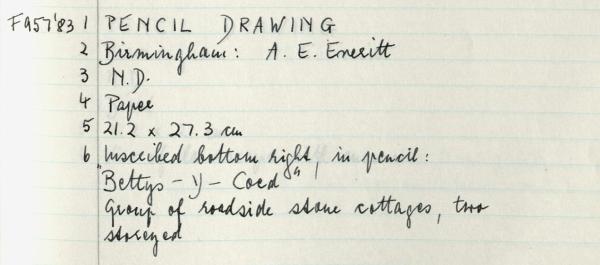 F957'83 1 PENCIL DRAWING
2 Birmingham: A. E. Everitt
3 N.D.
4 Paper
5 21.2 x 27.3 cm
6 Inscribed bottom right, in pencil:
"Bettys - y - Coed"
Group of roadside stone cottages, two
storeyed